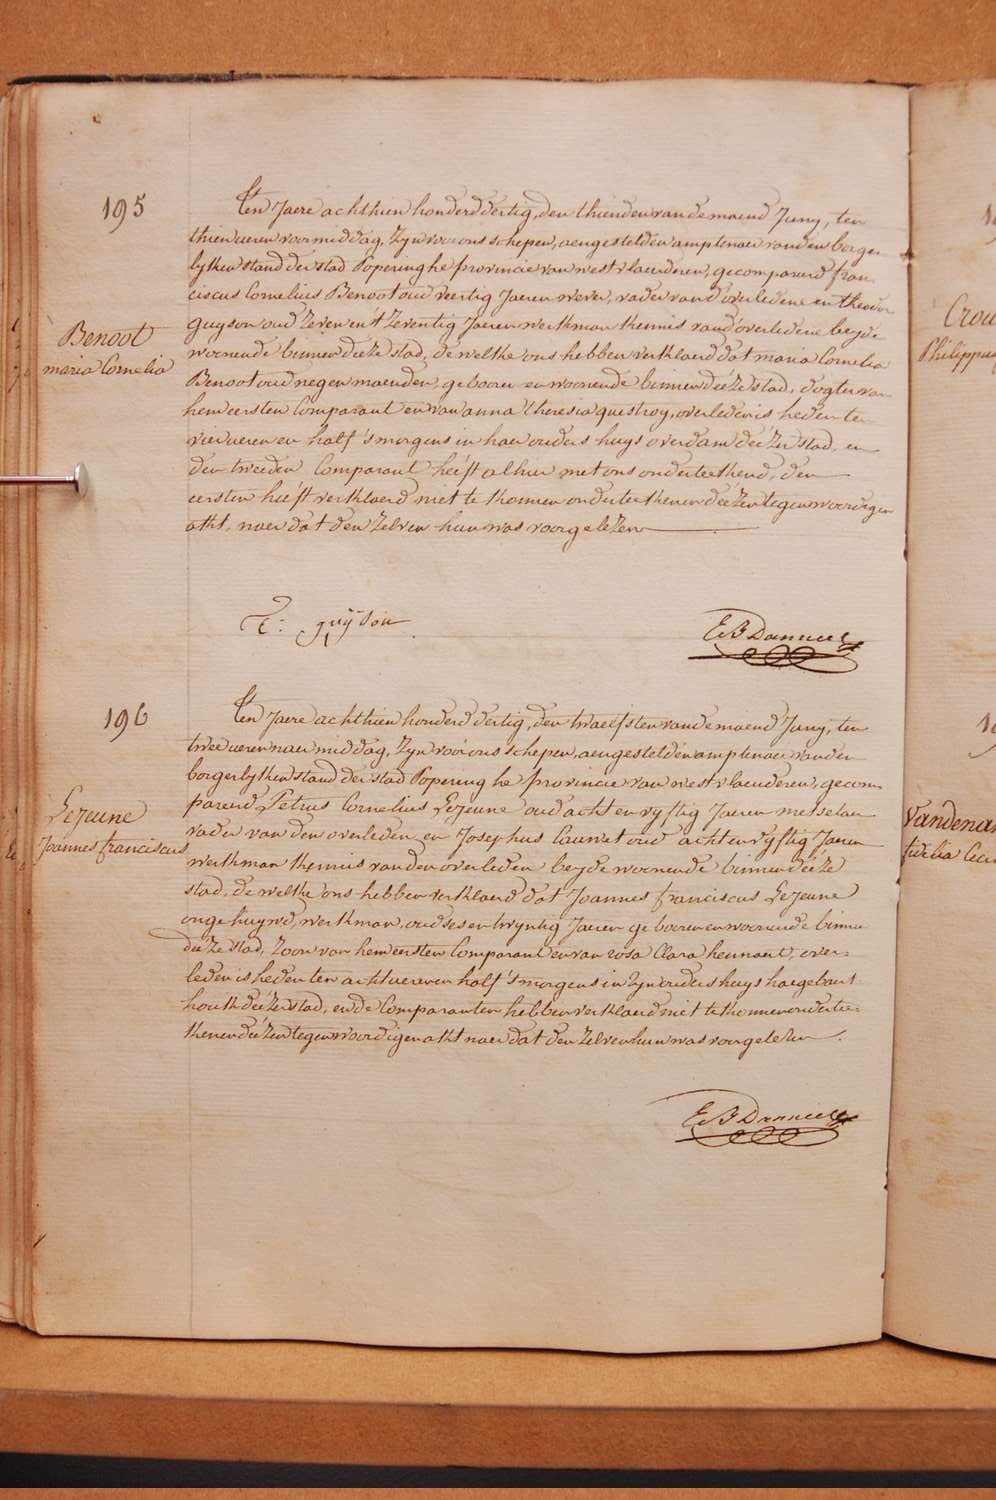 195
Benoot
maria Cornelia
Ten Jaere achthien honderd dertig, den thienden van de maend Juny, ten
thien ueren voormiddag, zyn voor ons schepen, aengestelden amptenaer van den borger-
lyken stand der stad Poperinghe provincie van westvlaenderen, gecompareerd fran
ciscus Cornelius Benoot oud veertig Jaeren wever, vader vand'overledene en theodor
guyson oud zeven en't zeventig Jaeren werkman kennis vand'overledene beyde
woonende binnen deéze stad, de welke ons hebben verklaerd dat maria Cornelia
Benoot oud negen maenden, gebooren en woonende binnen deéze stad, dogter van
hem eersten Comparant en van anna theresia questroy, overleden is heden ten
vier ueren en half 's morgens in haer ouders huys overdam deézer stad, en
den tweeden Comparant heéft alhier met ons onderteekend, den
eersten heéft verklaerd niet te konnen onderteekenen deézen tegenwoordigen
akt, naer dat den zelven hun was voorgelezen
T: guÿson
E B Danneel
196
Lejeune
Joannes franciscus
Ten Jaere achthien honderd dertig, den twaelfsten van de maend Juny, ten
twee ueren naermiddag, zyn voor ons schepen, aengestelden amptenaer van den
borgerlyken stand der stad Poperinghe provincie van westvlaenderen, gecom
pareerd Petrus Cornelius Lejeune oud acht en vyftig Jaeren metselaer
vader van den overleden en Josephus Cauwet oud acht en vyftig Jaeren
werkman kennis van den overleden beyde woonende binnen deéze
stad, de welke ons hebben verklaerd dat Joannes franciscus Lejeune
ongehuywd, werkman, oud ses en twyntig Jaeren gebooren en woonende binnen
deéze stad, zoon van hem eersten Comparant en van rosa Clara hennaert, over-
leden is heden ten acht ueren en half 's morgens in zyn vaders huys haegebaert
houk deézer stad, en de Comparanten hebben verklaerd niet te konnen ondertee-
kenen deézen tegenwoordigen akt naer dat den zelven hun was voorgelezen.
E B Danneel
Crou
Philippus
Vandenar